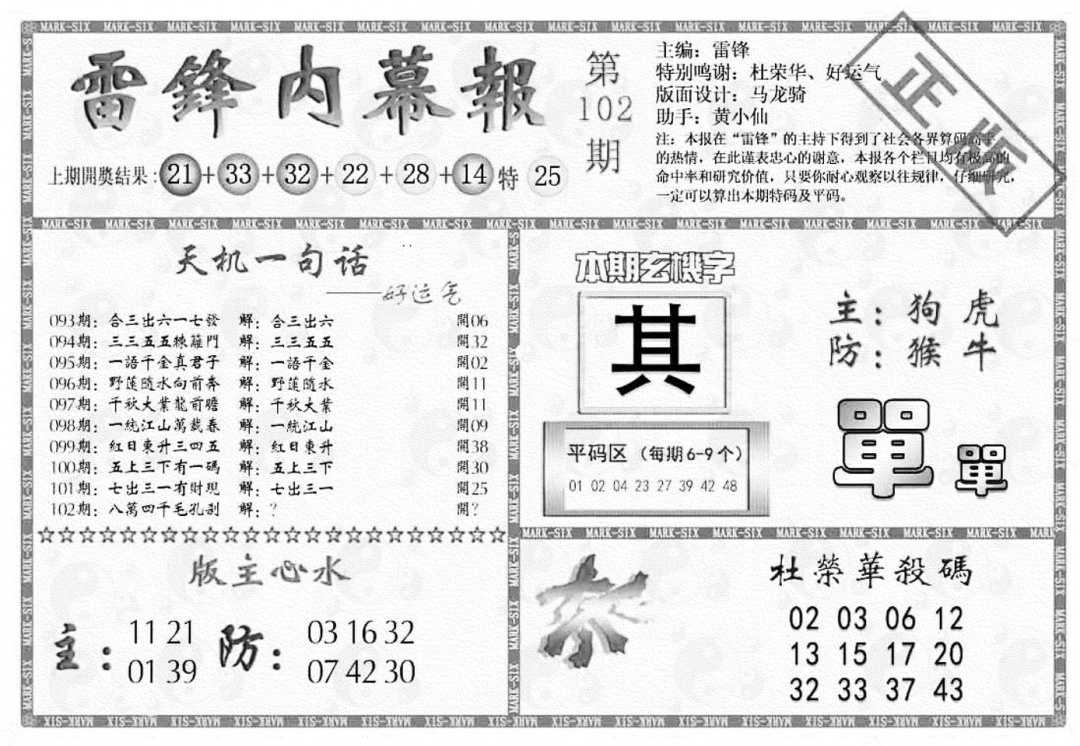 雷鋒内幕報
第
102
期
上期開獎结果：21+33+32+22+28+14 特 25
主编：雷锋
特别鸣谢：杜荣华、好运气
版面设计：马龙骑
助手：黄小仙
注：本报在“雷锋”的主持下得到了社会各界算码高手
的热情，在此谨表忠心的谢意，本报各个栏目均有极高的
命中率和研究价值，只要你耐心观察以往规律，仔细研究，
一定可以算出本期特码及平码。
正版
天机一句话
——好运气
093期：合三出六一七發 解：合三出六 開06
094期：三三五五棘籬門 解：三三五五 開32
095期：一語千金真君子 解：一語千金 開02
096期：野蓮隨水向前奔 解：野蓮隨水 開11
097期：千秋大業龍前瞻 解：千秋大業 開11
098期：一統江山萬載春 解：一統江山 開09
099期：紅日東升三四五 解：紅日東升 開38
100期：五上三下有一碼 解：五上三下 開30
101期：七出三一有財現 解：七出三一 開25
102期：八萬四千毛孔刮 解：？ 開？
本期玄機字
其
主：狗 虎
防：猴 牛
單 單
平码区（每期6-9个）
01 02 04 23 27 39 42 48
版主心水
主： 11 21
01 39
防： 03 16 32
07 42 30
杀
杜榮華殺碼
02 03 06 12
13 15 17 20
32 33 37 43
MARK-SIX